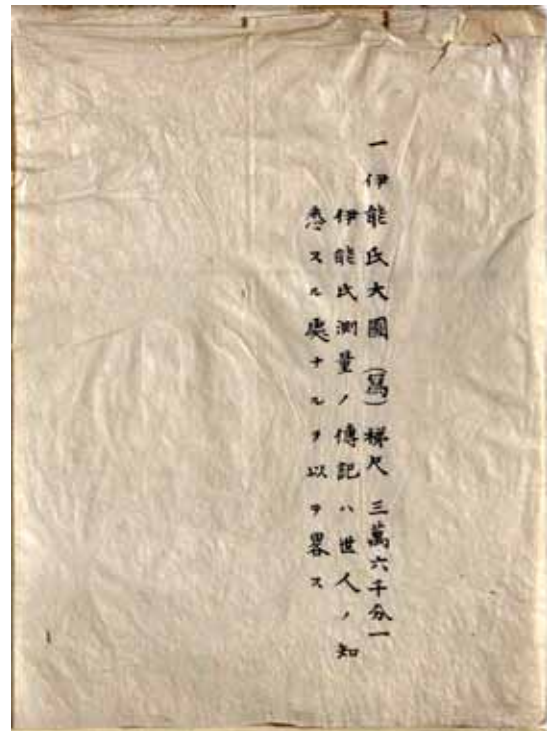 一伊能氏大圖(寫)梯尺 三萬六千分一
伊能氏測量ノ傳記ハ世人ノ知
悉スル處ナルヲ以テ畧ス